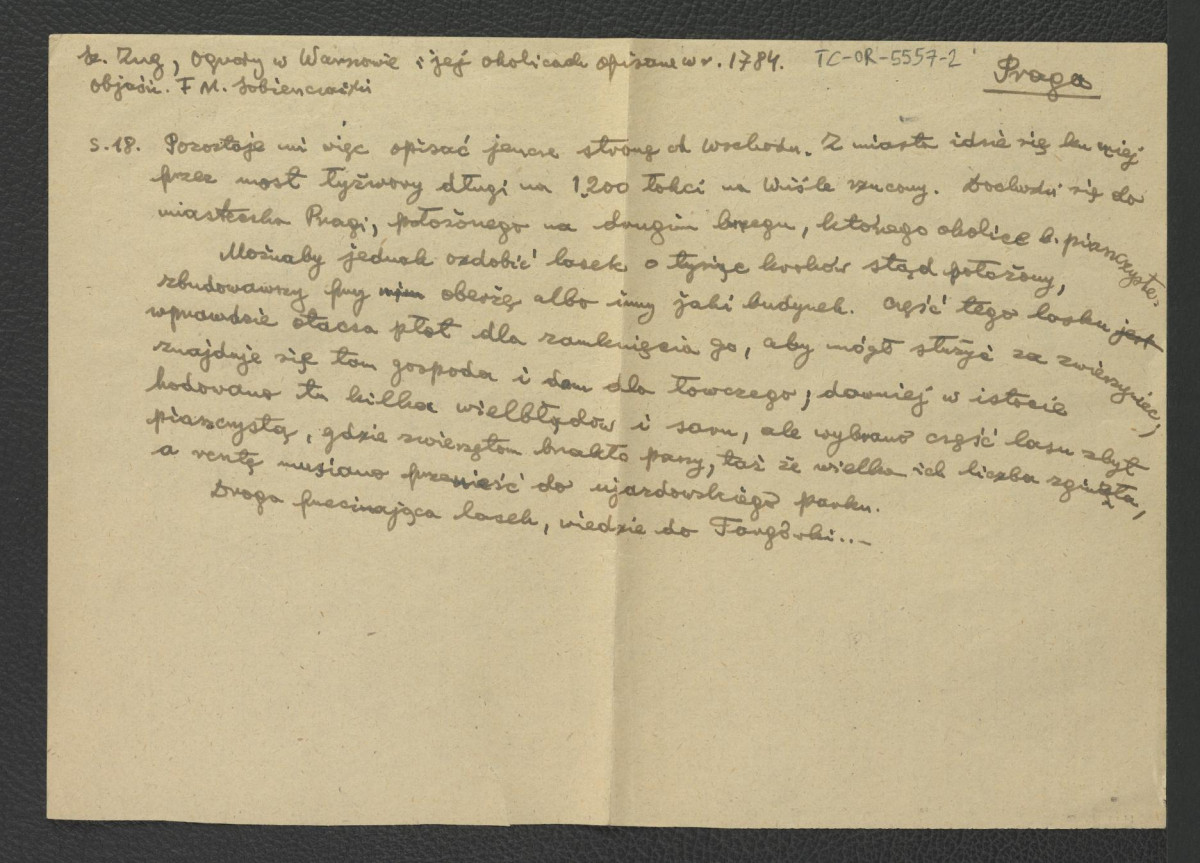 Sz. Zug, Ogrody w Warszawie i jej okolicach opisane w r. 1784. TC-OR-5557-2 Praga
objaśn. F M. Sobieszczański
s. 18. Pozostaje mi więc opisać jeszcze stronę od wschodu. Z miasta idzie się ku niej
przez most łyżwowy długi na 1,200 łokci na Wiśle rzucony. Dochodzi się do
miasteczka Pragi, położonego na drugim brzegu, którego okolice b. piaszczyste.
Możnaby jednak ozdobić lasek o tysiąc kroków stąd położony,
zbudowawszy przy nim oberżę albo inny jaki budynek. Część tego lasku jest
wprawdzie otacza płot dla zamknięcia go, aby mógł służyć za zwierzyniec,
znajduje się tam gospoda i dom dla łowczego; dawniej w istocie
hodowano tu kilka wielbłądów i sarn, ale wybrano część lasu zbyt
piaszczystą, gdzie zwierzętom brakło paszy, taż że wielka ich liczba zginęła,
a resztę musiano przenieść do ujazdowskiego parku.
Droga przecinająca lasek, wiedzie do Targówki...